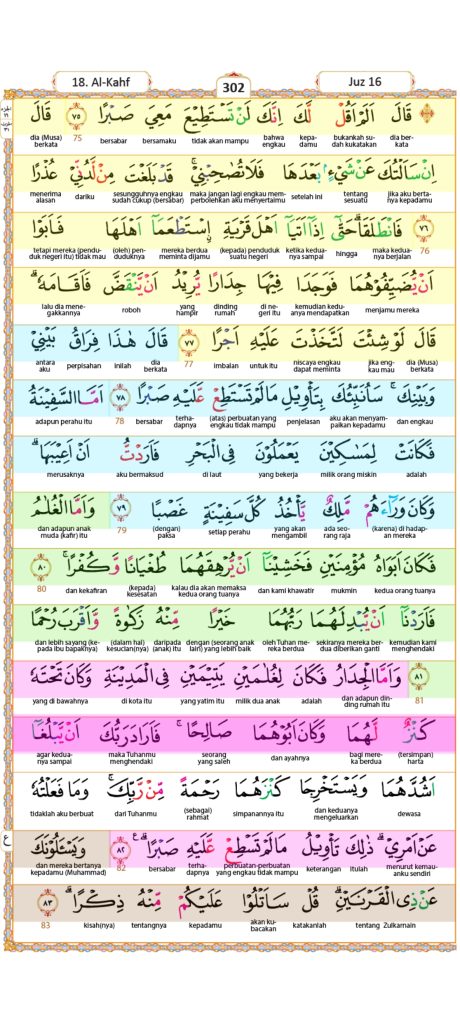 18. Al-Kahf
302
Juz 16
قَالَ اَلَمْ اَقُلْ لَّكَ اِنَّكَ لَنْ تَسْتَطِيْعَ مَعِيَ صَبْرًا ﴿٧٥﴾ قَالَ
dia berkata bukankah sudah kukatakan kepadamu bahwa engkau tidak akan mampu bersamaku bersabar 75 dia (Musa) berkata
اِنْ سَاَلْتُكَ عَنْ شَيْءٍۢ بَعْدَهَا فَلَا تُصٰحِبْنِيْۚ قَدْ بَلَغْتَ مِنْ لَّدُنِّيْ عُذْرًا
jika aku bertanya kepadamu tentang sesuatu setelah ini maka jangan lagi engkau memperbolehkan aku menyertaimu sesungguhnya engkau sudah cukup (bersabar) dariku menerima alasan
﴿٧٦﴾ فَانْطَلَقَاۗ حَتّٰىٓ اِذَآ اَتَيَآ اَهْلَ قَرْيَةِ ࣙاسْتَطْعَمَآ اَهْلَهَا فَاَبَوْا
76 maka keduanya berjalan hingga ketika keduanya sampai (kepada) penduduk suatu negeri mereka berdua meminta dijamu (oleh) penduduknya tetapi mereka (penduduk negeri itu) tidak mau
اَنْ يُّضَيِّفُوْهُمَا فَوَجَدَا فِيْهَا جِدَارًا يُّرِيْدُ اَنْ يَّنْقَضَّ فَاَقَامَهٗۗ
menjamu mereka kemudian keduanya mendapatkan di negeri itu dinding rumah yang hampir roboh lalu dia menegakkannya
قَالَ لَوْ شِئْتَ لَتَّخَذْتَ عَلَيْهِ اَجْرًا ﴿٧٧﴾ قَالَ هٰذَا فِرَاقُ بَيْنِيْ
dia (Musa) berkata jika engkau mau niscaya engkau dapat meminta untuk itu imbalan 77 dia berkata inilah perpisahan antara aku
وَبَيْنِكَۚ سَاُنَبِّئُكَ بِتَأْوِيْلِ مَا لَمْ تَسْتَطِعْ عَّلَيْهِ صَبْرًا ﴿٧٨﴾ اَمَّا السَّفِيْنَةُ
dan engkau aku akan menyampaikan kepadamu penjelasan (atas) perbuatan yang engkau tidak mampu terhadapnya bersabar 78 adapun perahu itu
فَكَانَتْ لِمَسٰكِيْنَ يَعْمَلُوْنَ فِى الْبَحْرِ فَاَرَدْتُّ اَنْ اَعِيْبَهَاۗ
adalah milik orang miskin yang bekerja di laut aku bermaksud merusaknya
وَكَانَ وَرَاۤءَهُمْ مَّلِكٌ يَّأْخُذُ كُلَّ سَفِيْنَةٍ غَصْبًا ﴿٧٩﴾ وَاَمَّا الْغُلٰمُ
(karena) di hadapan mereka ada seorang raja yang akan mengambil setiap perahu (dengan) paksa 79 dan adapun anak muda (kafir) itu
فَكَانَ اَبَوٰهُ مُؤْمِنَيْنِ فَخَشِيْنَآ اَنْ يُّرْهِقَهُمَا طُغْيَانًا وَّكُفْرًاۚ ﴿٨٠﴾
kedua orang tuanya mukmin dan kami khawatir kalau dia akan memaksa kedua orang tuanya (kepada) kesesatan dan kekafiran 80
فَاَرَدْنَآ اَنْ يُّبْدِلَهُمَا رَبُّهُمَا خَيْرًا مِّنْهُ زَكٰوةً وَّاَقْرَبَ رُحْمًا
kemudian kami menghendaki sekiranya mereka berdua diberikan ganti oleh Tuhan mereka berdua dengan (seorang anak lain) yang lebih baik daripada (anak) itu (dalam hal) kesucian(nya) dan lebih sayang (kepada ibu bapaknya)
﴿٨١﴾ وَاَمَّا الْجِدَارُ فَكَانَ لِغُلٰمَيْنِ يَتِيْمَيْنِ فِى الْمَدِيْنَةِ وَكَانَ تَحْتَهٗ
81 dan adapun dinding rumah itu adalah milik dua anak yang yatim itu di kota itu yang di bawahnya
كَنْزٌ لَّهُمَا وَكَانَ اَبُوْهُمَا صَالِحًاۚ فَاَرَادَ رَبُّكَ اَنْ يَّبْلُغَآ
(tersimpan) harta bagi mereka berdua dan ayahnya seorang yang saleh maka Tuhanmu menghendaki agar keduanya sampai
اَشُدَّهُمَا وَيَسْتَخْرِجَا كَنْزَهُمَا رَحْمَةً مِّنْ رَّبِّكَۚ وَمَا فَعَلْتُهٗ
dewasa dan keduanya mengeluarkan simpanannya itu (sebagai) rahmat dari Tuhanmu tidaklah aku berbuat
عَنْ اَمْرِيْۗ ذٰلِكَ تَأْوِيْلُ مَا لَمْ تَسْطِعْ عَّلَيْهِ صَبْرًاۗ ﴿٨٢﴾ ع وَيَسْـَٔلُوْنَكَ
menurut kemauanku sendiri itulah keterangan perbuatan-perbuatan yang engkau tidak mampu terhadapnya bersabar 82 dan mereka bertanya kepadamu (Muhammad)
عَنْ ذِى الْقَرْنَيْنِۗ قُلْ سَاَتْلُوْا عَلَيْكُمْ مِّنْهُ ذِكْرًاۗ ﴿٨٣﴾
tentang Zulkarnain katakanlah akan kubacakan kepadamu tentangnya kisah(nya) 83
ع